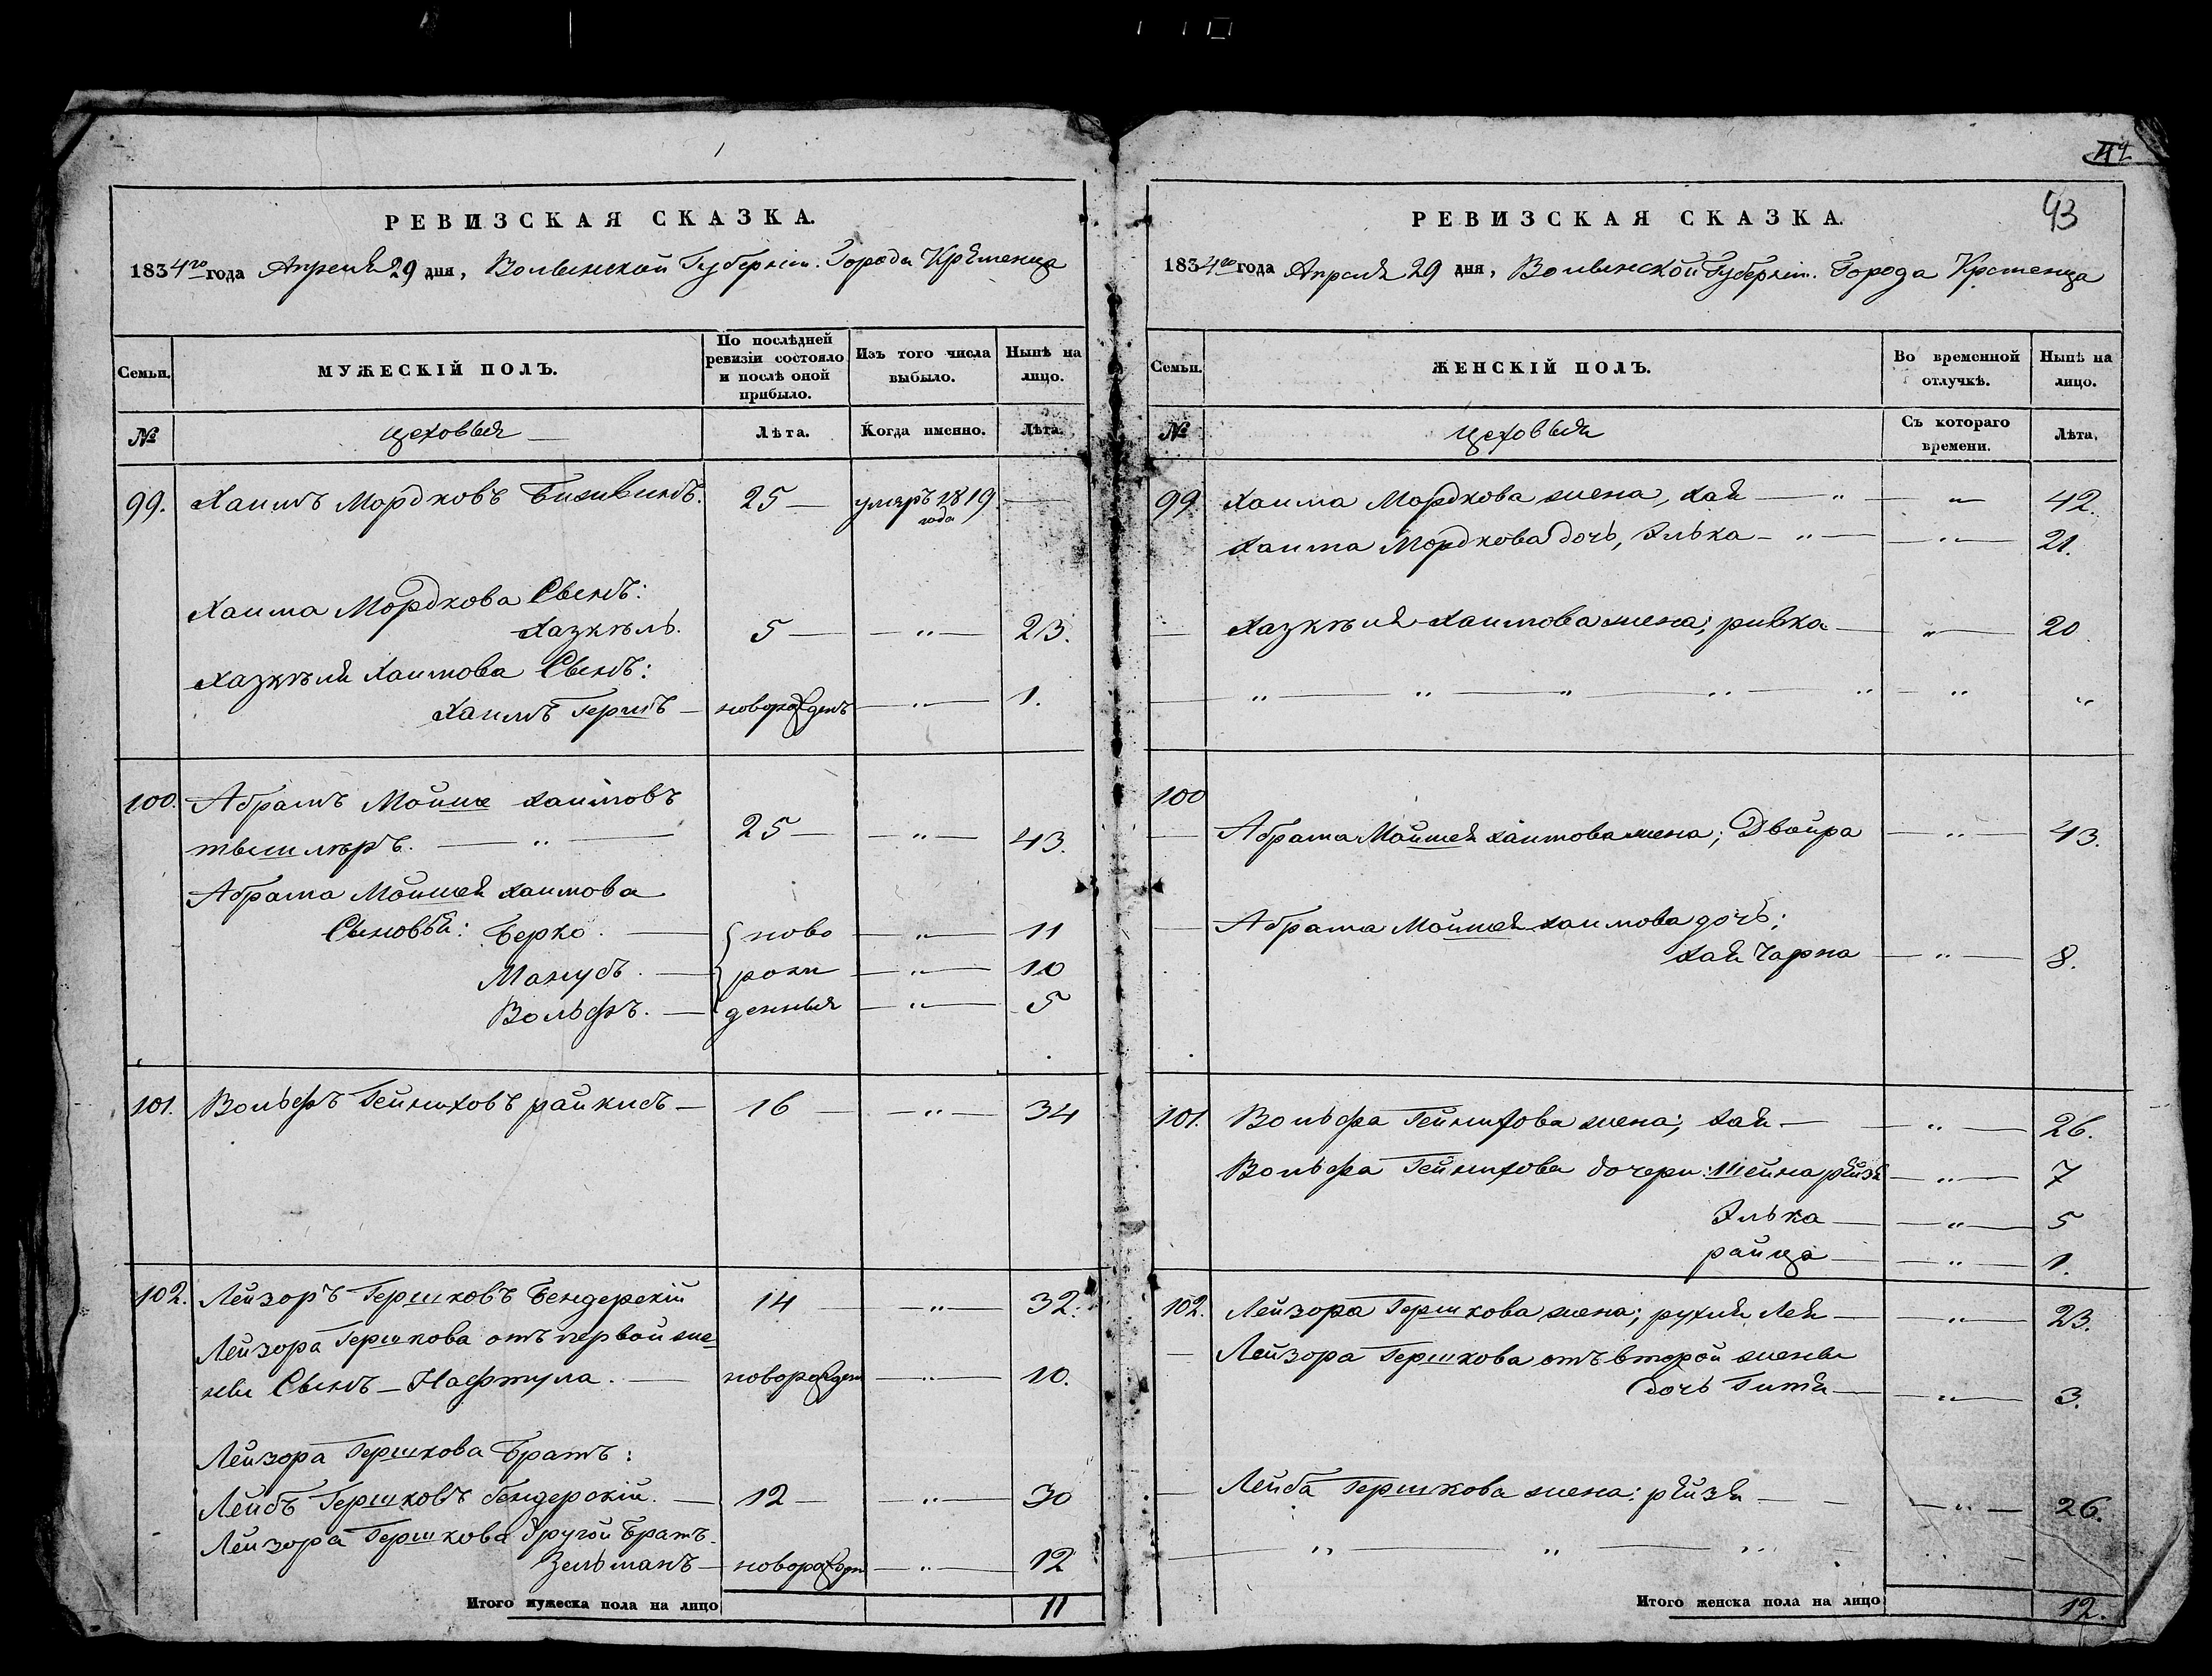 РЕВИЗСКАЯ СКАЗКА.
1834го года Апреля 29 дня, Волынской Губерніи. Города Кременца
Семьи.
МУЖЕСКІЙ ПОЛЪ.
По послѣдней ревизіи состояло и послѣ оной прибыло.
Изъ того числа выбыло.
Нынѣ на лицо.
№
цеховыя
Лѣта.
Когда именно.
Лѣта.
99. Хаимъ Мордковъ 25 — умеръ 1819 —
года
Хаима Мордкова Сынъ:
Хазкѣль. 5 — — " — 23.
Хазкѣля Хаимова Сынъ:
Хаимъ Гершъ — новорожденъ — " — 1.
100. Абрамъ Мойше Хаимовъ
25 — — " — 43.
Абрама Мойшея Хаимова
Сыновья: Берко. — ново — " — 11
Манусъ. — рож — " — 10
Вольфъ. — денныя — " — 5
101. Вольфъ Гейниховъ райкисъ — 16 — " — 34
102. Лейзоръ Гершковъ Бендерскій 14 — " — 32.
Лейзора Гершкова отъ первой же
ны Сынъ — Нафтула. — новорожден — " — 10.
Лейзора Гершкова Братъ:
Лейбъ Гершковъ бендерскій. — 12 — — " — 30
Лейзора Гершкова другой Братъ.
Зельманъ — новорожден — " — 12
Итого мужеска пола на лицо 11
43
РЕВИЗСКАЯ СКАЗКА.
1834го года Апреля 29 дня, Волынской Губерніи. Города Кременца
Семьи.
ЖЕНСКІЙ ПОЛЪ.
Во временной отлучкѣ.
Нынѣ на лицо.
№
цеховыя
Съ котораго времени.
Лѣта.
99 Хаима Мордкова жена, Хая — " — " — 42.
Хаима Мордкова дочь, Элька — " — — " — 21.
— Хазкѣля Хаимова жена; ривка — " — 20
— " — " — " — " — " — " "
100
— Абрама Мойшея Хаимова жена; Двойра — " — 43.
— Абрама Мойшея Хаимова дочь;
Хая Чарна — " — 8.
101. Вольфа Гейнихова жена; Хая — — " — 26.
Вольфа Гейнихова дочери: Шейна рейзя — " — 7
Элька — — " — 5
райца — — " — 1.
102. Лейзора Гершкова жена; рухля Лея — — " — 23.
— Лейзора Гершкова отъ второй жены
дочь Гитя — — " — 3.
— Лейба Гершкова жена: рейзя — — — " — 26.
— " — " — "
Итого женска пола на лицо 12.